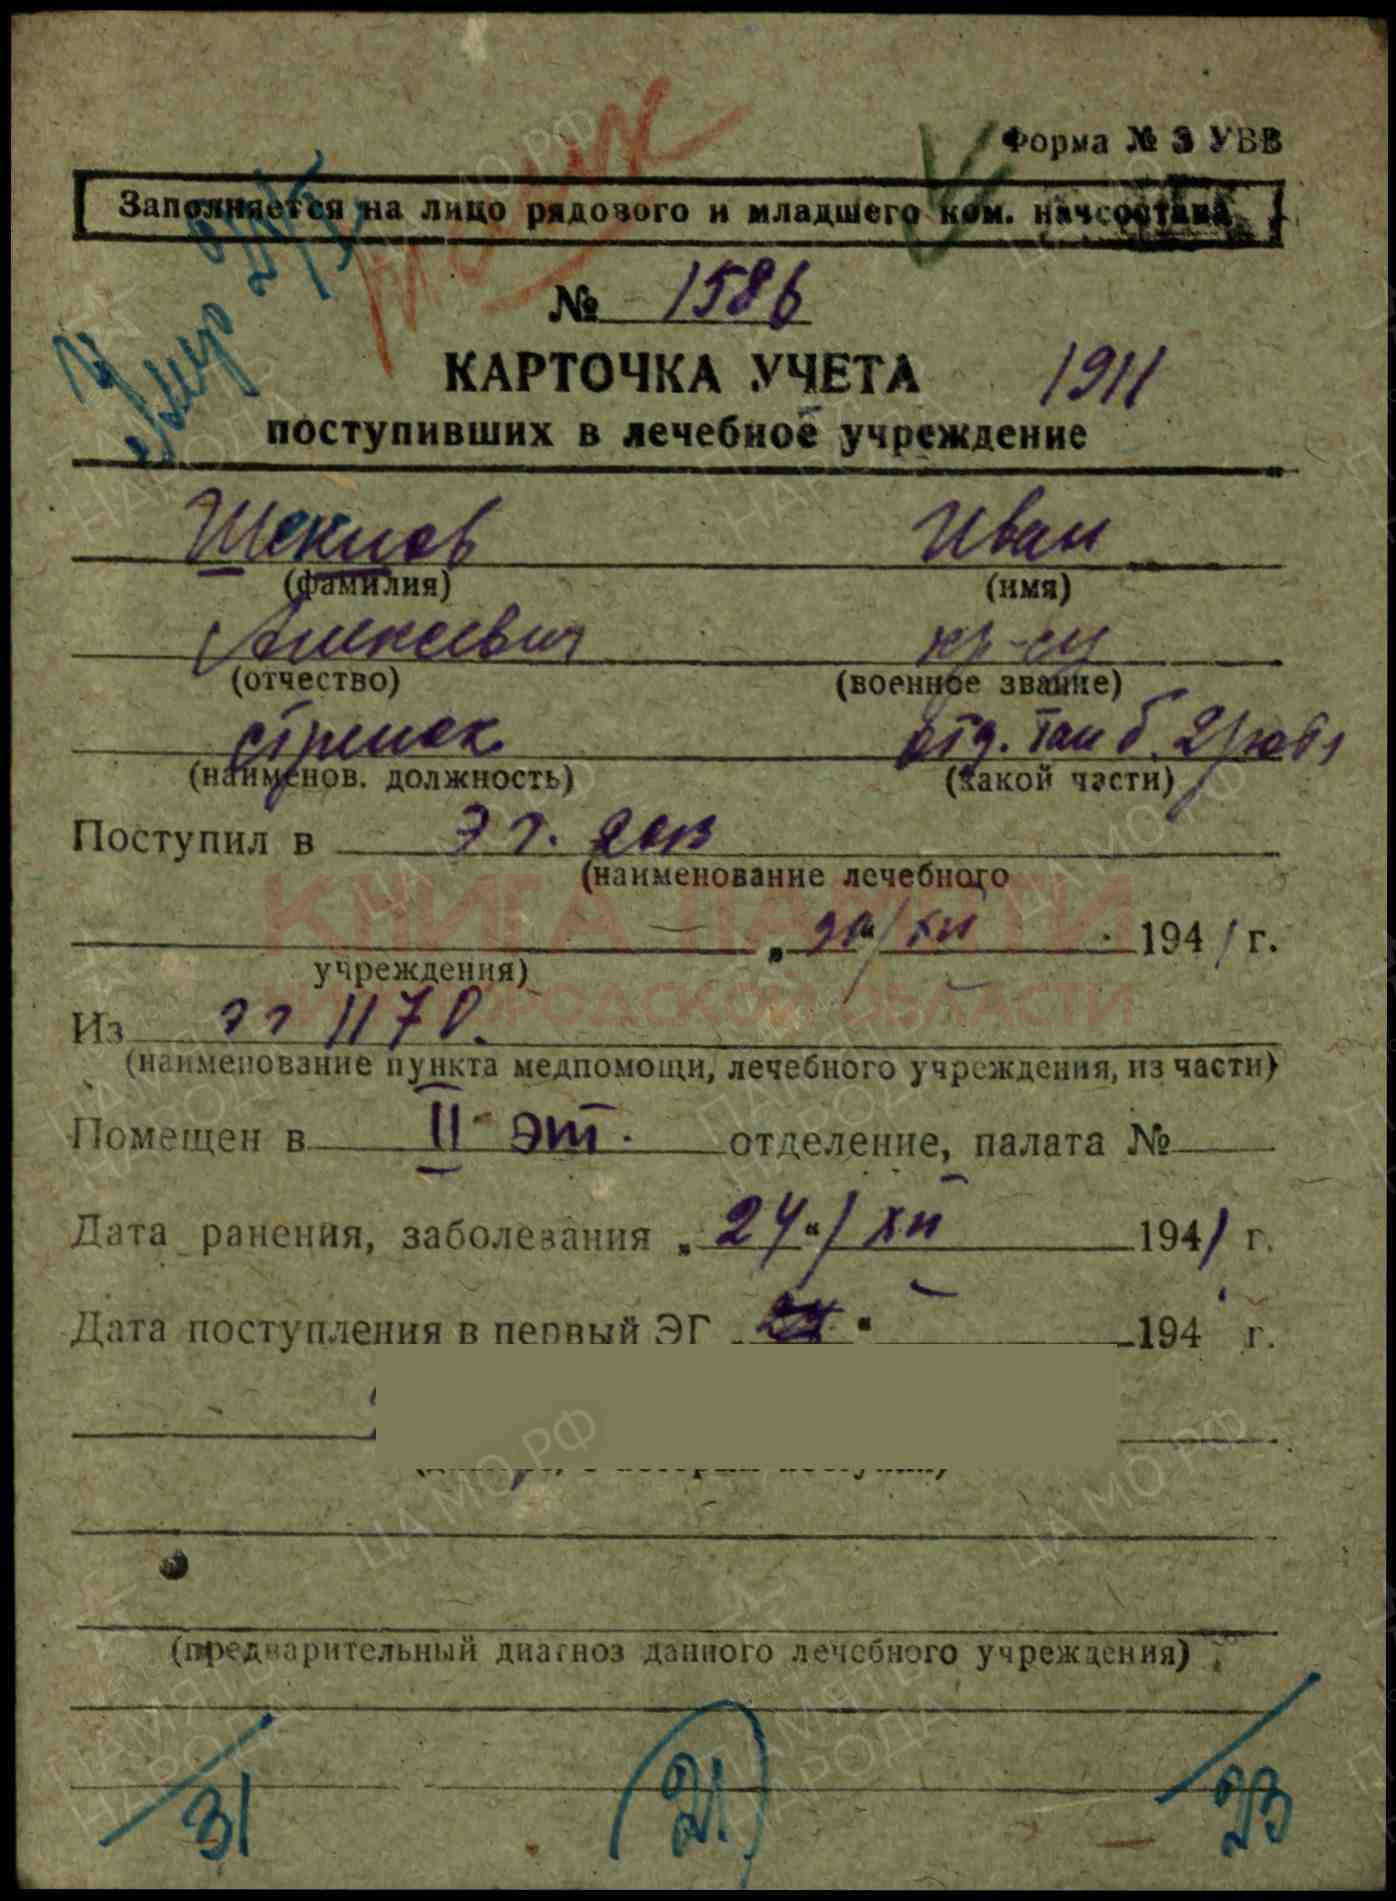 Форма № 3 УВВ
Заполняется на лицо рядового и младшего ком. начсостава
умер
№ 1586
КАРТОЧКА УЧЕТА 1911
поступивших в лечебное учреждение
Иван
(фамилия) (имя)
Алексеевич кр-ец
(отчество) (военное звание)
стрелок отд. тан б.
(наименов. должность) (какой части)
Поступил в эг.
(наименование лечебного
КНИГА ПАМЯТИ
"30" XII 1941 г.
учреждения)
НИЖЕГОРОДСКОЙ ОБЛАСТИ
Из эг 1170.
(наименование пункта медпомощи, лечебного учреждения, из части)
Помещен в II эт. отделение, палата №
Дата ранения, заболевания "24" XII 1941 г.
Дата поступления в первый ЭГ " 194 г.
(предварительный диагноз данного лечебного учреждения)
31 21 23
ЦА МО РФ
ПАМЯТЬ НАРОДА